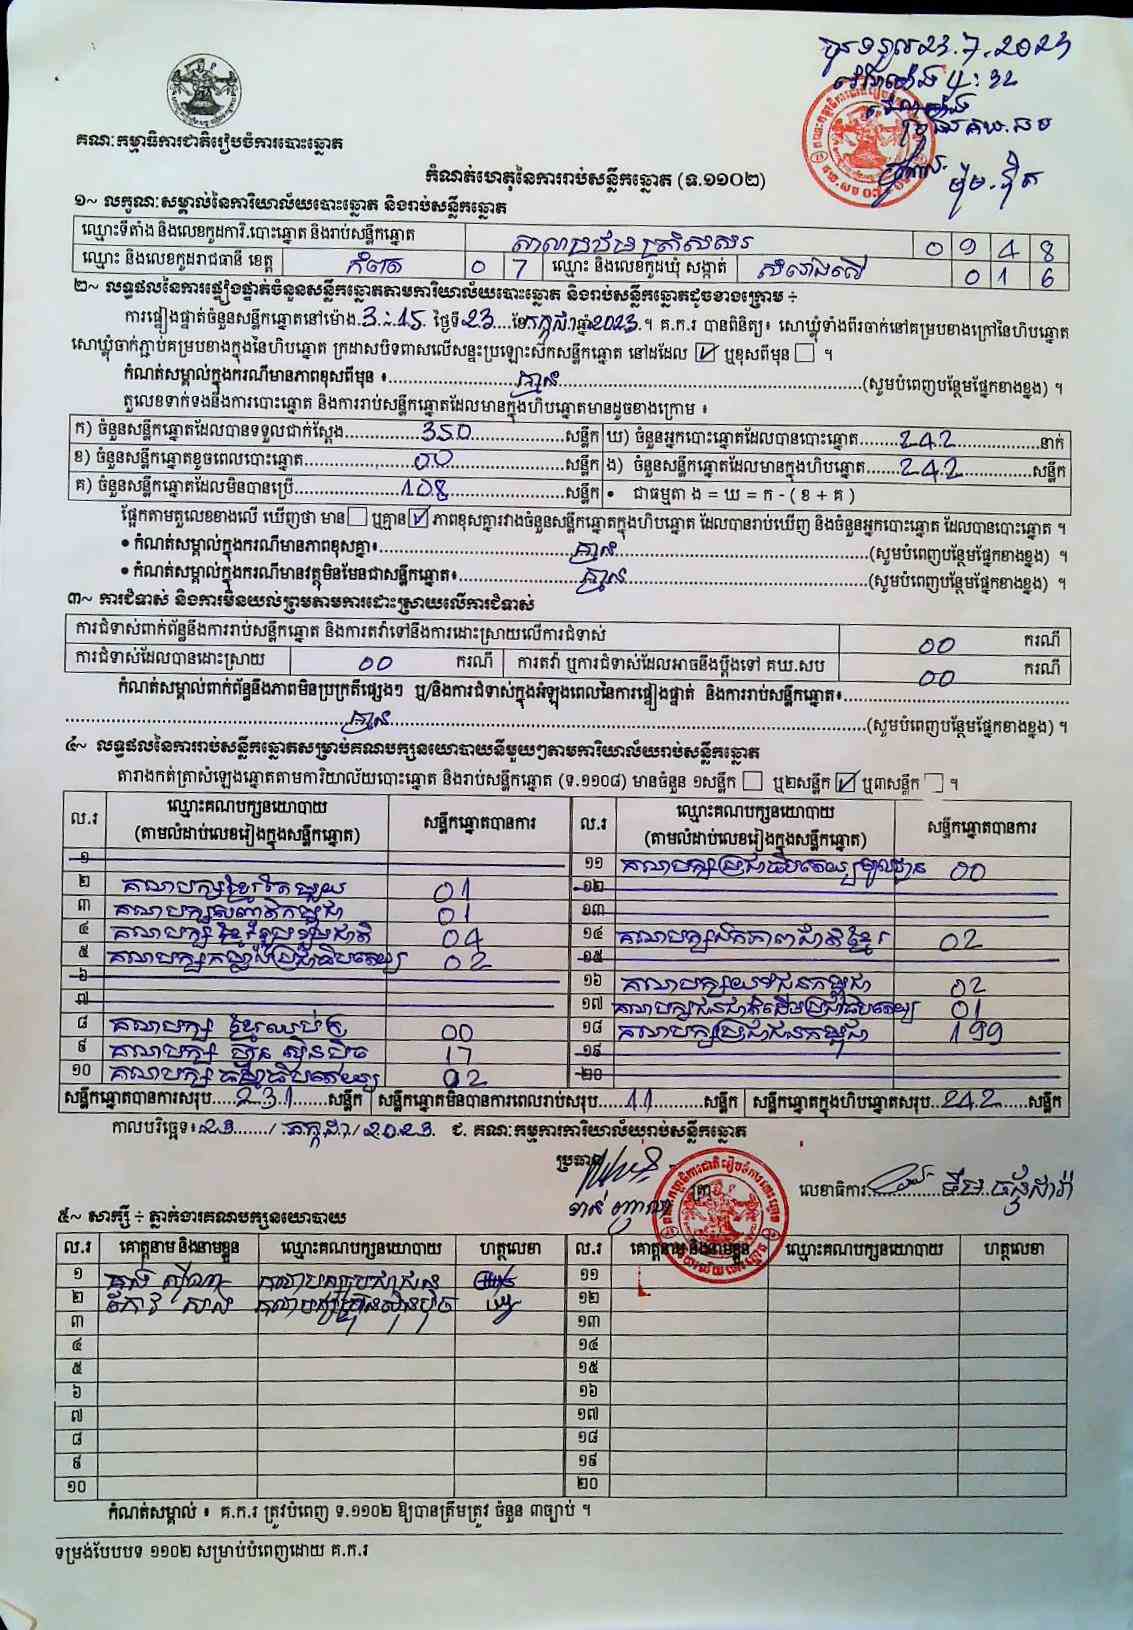 ជូនទទួល 23.7.2023
វេលាម៉ោង 4:32
គណៈកម្មាធិការជាតិរៀបចំការបោះឆ្នោត
កំណត់ហេតុនៃការរាប់សន្លឹកឆ្នោត (ទ.១១០២)
១~ លក្ខណៈសម្គាល់នៃការិយាល័យបោះឆ្នោត និងរាប់សន្លឹកឆ្នោត
ឈ្មោះទីតាំង និងលេខកូដការិ.បោះឆ្នោត និងរាប់សន្លឹកឆ្នោត 0 9 4 8
ឈ្មោះ និងលេខកូដរាជធានី ខេត្ត កំពត 0 7 ឈ្មោះ និងលេខកូដឃុំ សង្កាត់ សំរោងលើ 0 1 6
២~ លទ្ធផលនៃការផ្ទៀងផ្ទាត់ចំនួនសន្លឹកឆ្នោតតាមការិយាល័យបោះឆ្នោត និងរាប់សន្លឹកឆ្នោតដូចខាងក្រោម ÷
ការផ្ទៀងផ្ទាត់ចំនួនសន្លឹកឆ្នោតនៅម៉ោង.3:15. ថ្ងៃទី23....ខែកក្កដាឆ្នាំ2023.។ គ.ក.រ បានពិនិត្យ៖ សោឃ្លុំទាំងពីរចាក់នៅគម្របខាងក្រៅនៃហិបឆ្នោត
សោឃ្លុំចាក់ភ្ជាប់គម្របខាងក្នុងនៃហិបឆ្នោត ក្រដាសបិទពាសលើសន្ទះប្រឡោះសឹកសន្លឹកឆ្នោត នៅដដែល ☑ ឬខុសពីមុន ☐ ។
កំណត់សម្គាល់ក្នុងករណីមានភាពខុសពីមុន ៖..........គ្មាន..........(សូមបំពេញបន្ថែមផ្នែកខាងខ្នង) ។
តួលេខទាក់ទងនឹងការបោះឆ្នោត និងការរាប់សន្លឹកឆ្នោតដែលមានក្នុងហិបឆ្នោតមានដូចខាងក្រោម ៖
ក) ចំនួនសន្លឹកឆ្នោតដែលបានទទួលជាក់ស្ដែង..........350..........សន្លឹក ឃ) ចំនួនអ្នកបោះឆ្នោតដែលបានបោះឆ្នោត........242..........នាក់
ខ) ចំនួនសន្លឹកឆ្នោតខូចពេលបោះឆ្នោត..........00..........សន្លឹក ង) ចំនួនសន្លឹកឆ្នោតដែលមានក្នុងហិបឆ្នោត.......242..........សន្លឹក
គ) ចំនួនសន្លឹកឆ្នោតដែលមិនបានប្រើ..........108..........សន្លឹក • ជាធម្មតា ង = ឃ = ក - ( ខ + គ )
ផ្អែកតាមតួលេខខាងលើ ឃើញថា មាន☐ ឬគ្មាន☑ ភាពខុសគ្នារវាងចំនួនសន្លឹកឆ្នោតក្នុងហិបឆ្នោត ដែលបានរាប់ឃើញ និងចំនួនអ្នកបោះឆ្នោត ដែលបានបោះឆ្នោត ។
• កំណត់សម្គាល់ក្នុងករណីមានភាពខុសគ្នា៖..........គ្មាន..........(សូមបំពេញបន្ថែមផ្នែកខាងខ្នង) ។
• កំណត់សម្គាល់ក្នុងករណីមានវត្ថុមិនមែនជាសន្លឹកឆ្នោត៖..........គ្មាន..........(សូមបំពេញបន្ថែមផ្នែកខាងខ្នង) ។
៣~ ការជំទាស់ និងការមិនយល់ព្រមតាមការដោះស្រាយលើការជំទាស់
ការជំទាស់ពាក់ព័ន្ធនឹងការរាប់សន្លឹកឆ្នោត និងការតវ៉ាទៅនឹងការដោះស្រាយលើការជំទាស់ 00 ករណី
ការជំទាស់ដែលបានដោះស្រាយ 00 ករណី ការតវ៉ា ឬការជំទាស់ដែលអាចនឹងប្ដឹងទៅ គឃ.សប 00 ករណី
កំណត់សម្គាល់ពាក់ព័ន្ធនឹងភាពមិនប្រក្រតីផ្សេងៗ ឬ/និងការជំទាស់ក្នុងអំឡុងពេលនៃការផ្ទៀងផ្ទាត់ និងការរាប់សន្លឹកឆ្នោត៖..........
..........គ្មាន..........(សូមបំពេញបន្ថែមផ្នែកខាងខ្នង) ។
៤~ លទ្ធផលនៃការរាប់សន្លឹកឆ្នោតសម្រាប់គណបក្សនយោបាយនីមួយៗតាមការិយាល័យរាប់សន្លឹកឆ្នោត
តារាងកត់ត្រាសំឡេងឆ្នោតតាមការិយាល័យបោះឆ្នោត និងរាប់សន្លឹកឆ្នោត (ទ.១១០៨) មានចំនួន ១សន្លឹក ☐ ឬ២សន្លឹក ☑ ឬ៣សន្លឹក ☐ ។
ល.រ ឈ្មោះគណបក្សនយោបាយ (តាមលំដាប់លេខរៀងក្នុងសន្លឹកឆ្នោត) សន្លឹកឆ្នោតបានការ ល.រ ឈ្មោះគណបក្សនយោបាយ (តាមលំដាប់លេខរៀងក្នុងសន្លឹកឆ្នោត) សន្លឹកឆ្នោតបានការ
១ ១១ គណបក្សប្រជាធិបតេយ្យមូលដ្ឋាន 00
២ គណបក្សខ្មែរតែមួយ 01 ១២
៣ គណបក្សសញ្ជាតិកម្ពុជា 01 ១៣
៤ គណបក្សខ្មែររួបរួមជាតិ 04 ១៤ គណបក្សឯកភាពជាតិខ្មែរ 02
៥ គណបក្សកម្លាំងប្រជាធិបតេយ្យ 02 ១៥
៦ ១៦ គណបក្សយុវជនកម្ពុជា 02
៧ ១៧ គណបក្សជនជាតិដើមប្រជាធិបតេយ្យ 01
៨ គណបក្ស ខ្មែរឈប់ក្រ 00 ១៨ គណបក្សប្រជាជនកម្ពុជា 199
៩ គណបក្ស ហ្វ៊ុនស៊ិនប៉ិច 17 ១៩
១០ គណបក្ស ធម្មាធិបតេយ្យ 02 ២០
សន្លឹកឆ្នោតបានការសរុប....231.......សន្លឹក សន្លឹកឆ្នោតមិនបានការពេលរាប់សរុប....11..........សន្លឹក សន្លឹកឆ្នោតក្នុងហិបឆ្នោតសរុប..242......សន្លឹក
កាលបរិច្ឆេទ៖23......./.កក្កដា./2023. ជ. គណៈកម្មការការិយាល័យរាប់សន្លឹកឆ្នោត
ប្រធាន ត្រា លេខាធិការ
៥~ សាក្សី ÷ ភ្នាក់ងារគណបក្សនយោបាយ
ល.រ គោត្តនាម និងនាមខ្លួន ឈ្មោះគណបក្សនយោបាយ ហត្ថលេខា ល.រ គោត្តនាម និងនាមខ្លួន ឈ្មោះគណបក្សនយោបាយ ហត្ថលេខា
១ គណបក្សប្រជាជន ១១
២ គណបក្សហ្វ៊ុនស៊ិនប៉ិច ១២
៣ ១៣
៤ ១៤
៥ ១៥
៦ ១៦
៧ ១៧
៨ ១៨
៩ ១៩
១០ ២០
កំណត់សម្គាល់ ៖ គ.ក.រ ត្រូវបំពេញ ទ.១១០២ ឱ្យបានត្រឹមត្រូវ ចំនួន ៣ច្បាប់ ។
ទម្រង់បែបបទ ១១០២ សម្រាប់បំពេញដោយ គ.ក.រ